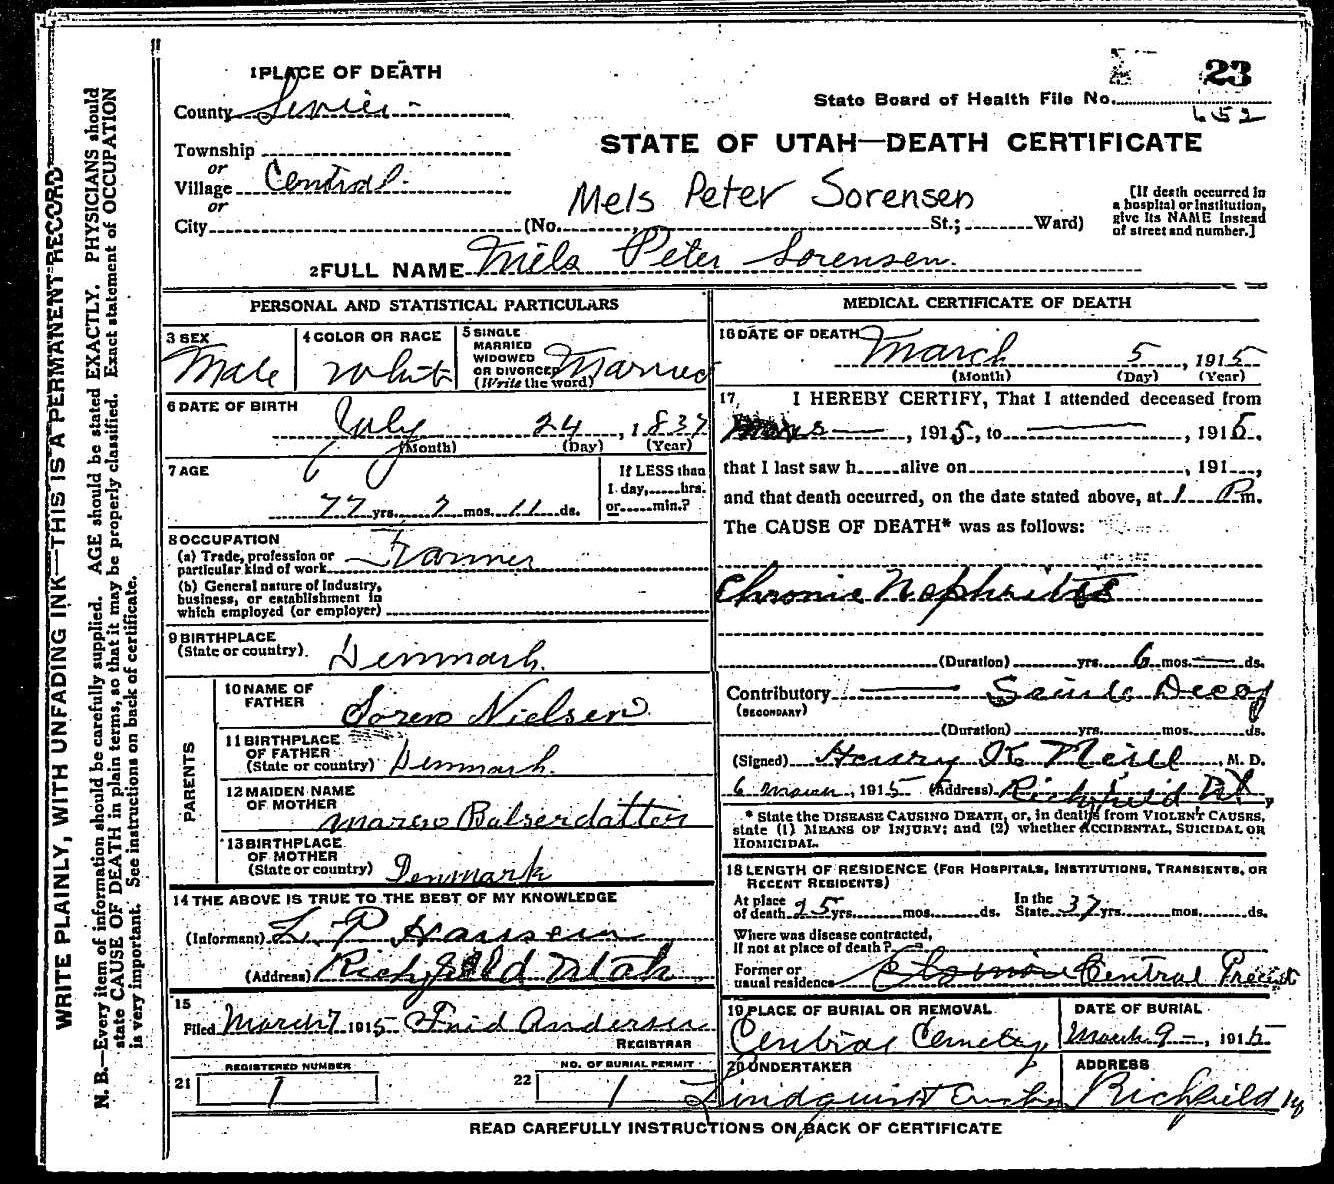 1 PLACE OF DEATH
23
County Sevier
State Board of Health File No.
652
STATE OF UTAH—DEATH CERTIFICATE
Township
or
Village Central
or
City (No. St.; Ward)
Mels Peter Sorensen
[If death occurred in
a hospital or institution,
give its NAME instead
of street and number.]
2 FULL NAME Niels Peter Sorensen.
PERSONAL AND STATISTICAL PARTICULARS
3 SEX
Male
4 COLOR OR RACE
White
5 SINGLE
MARRIED
WIDOWED
OR DIVORCED
(Write the word)
Married
6 DATE OF BIRTH
July 24, 1837
(Month) (Day) (Year)
7 AGE
77 yrs. 7 mos. 11 ds.
If LESS than
1 day, hrs.
or min.?
8 OCCUPATION
(a) Trade, profession or
particular kind of work Farmer
(b) General nature of Industry,
business, or establishment in
which employed (or employer)
9 BIRTHPLACE
(State or country) Denmark.
PARENTS
10 NAME OF
FATHER
Soren Nielsen
11 BIRTHPLACE
OF FATHER
(State or country) Denmark.
12 MAIDEN NAME
OF MOTHER
Maren Balserdatter
13 BIRTHPLACE
OF MOTHER
(State or country) Denmark
14 THE ABOVE IS TRUE TO THE BEST OF MY KNOWLEDGE
(Informant) L P Hansen
(Address) Richfield Utah
15
Filed March 7 1915 Enid Andersen
REGISTRAR
21 REGISTERED NUMBER
1
22 NO. OF BURIAL PERMIT
1
MEDICAL CERTIFICATE OF DEATH
16 DATE OF DEATH
March 5, 1915
(Month) (Day) (Year)
17, I HEREBY CERTIFY, That I attended deceased from
, 1915, to , 1915.
that I last saw h alive on , 191 ,
and that death occurred, on the date stated above, at 1 P m.
The CAUSE OF DEATH* was as follows:
Chronic Nephritis
(Duration) yrs. 6 mos. ds.
Contributory Senile Decay
(SECONDARY)
(Duration) yrs. mos. ds.
(Signed) Henry K Neill, M. D.
6 March, 1915 (Address) Richfield Ut,
* State the DISEASE CAUSING DEATH, or, in deaths from VIOLENT CAUSES,
state (1) MEANS OF INJURY; and (2) whether ACCIDENTAL, SUICIDAL OR
HOMICIDAL.
18 LENGTH OF RESIDENCE (FOR HOSPITALS, INSTITUTIONS, TRANSIENTS, OR
RECENT RESIDENTS)
At place
of death 25 yrs. mos. ds.
In the
State 37 yrs. mos. ds.
Where was disease contracted,
If not at place of death?
Former or
usual residence Central Precinct
19 PLACE OF BURIAL OR REMOVAL
Central Cemetery
DATE OF BURIAL
March 9, 1915
20 UNDERTAKER
Lindquist
ADDRESS
Richfield
READ CAREFULLY INSTRUCTIONS ON BACK OF CERTIFICATE
WRITE PLAINLY, WITH UNFADING INK—THIS IS A PERMANENT RECORD
N. B.—Every item of information should be carefully supplied. AGE should be stated EXACTLY. PHYSICIANS should
state CAUSE OF DEATH in plain terms, so that it may be properly classified. Exact statement of OCCUPATION
is very important. See instructions on back of certificate.